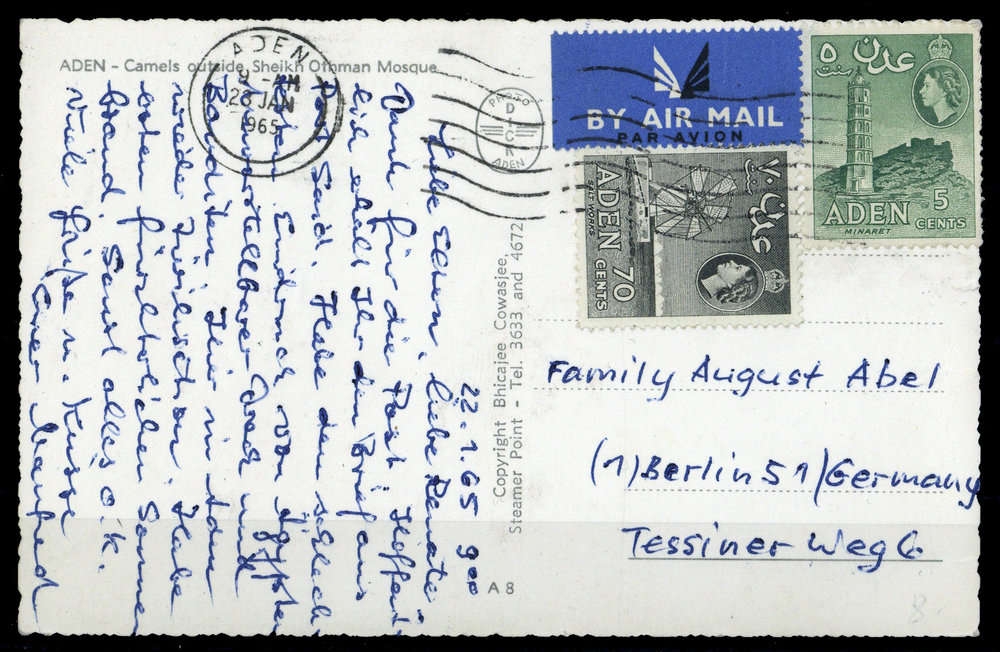 ADEN - Camels outside Sheikh Othman Mosque
ADEN
9 - AM
28 JAN
1965
ADEN
BY AIR MAIL
PAR AVION
٧٠
سنت
عدن
SALT WORKS
ADEN 70
CENTS
٥
سنت
عدن
ADEN 5
CENTS
MINARET
22.1.65 9⁰⁰
Liebe Eltern, liebe Renate
Dank für die Post. Hoffent-
lich erhalt Ihr den Brief aus
Port Said. Habe den schlech-
testen Eindruck von Ägypten
Unvorstellbarer Dreck und
Banditen. Hier in Aden
wieder Zivilisation. Habe
einen fürchterlichen Sonnen
brand. Sonst alles o.k.
Viele Grüße u. Küsse
Euer Manfred
Copyright Bhicajee Cowasjee,
Steamer Point - Tel. 3633 and 4672
A 8
Family August Abel
(1) Berlin 51/Germany
Tessiner Weg 6.